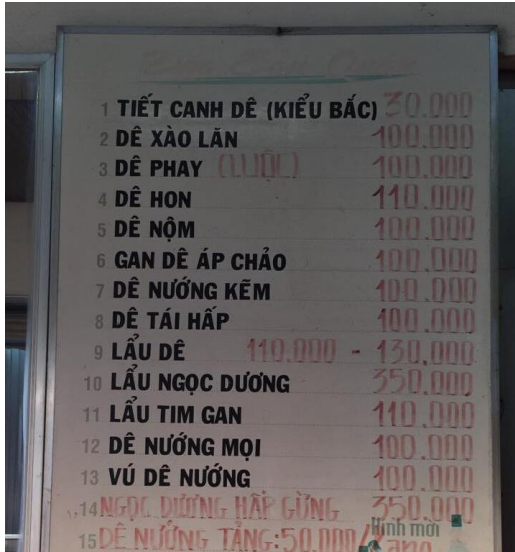 1 TIẾT CANH DÊ (KIỂU BẮC) 30.000
2 DÊ XÀO LĂN 100.000
3 DÊ PHAY (LUỘC) 100.000
4 DÊ HON 110.000
5 DÊ NỘM 100.000
6 GAN DÊ ÁP CHẢO 100.000
7 DÊ NƯỚNG KẼM 100.000
8 DÊ TÁI HẤP 100.000
9 LẨU DÊ 110.000 - 130.000
10 LẨU NGỌC DƯƠNG 350.000
11 LẨU TIM GAN 110.000
12 DÊ NƯỚNG MỌI 100.000
13 VÚ DÊ NƯỚNG 100.000
14 NGỌC DƯƠNG HẤP GỪNG 350.000
Hình mới
15 DÊ NƯỚNG TẢNG: 50.000/